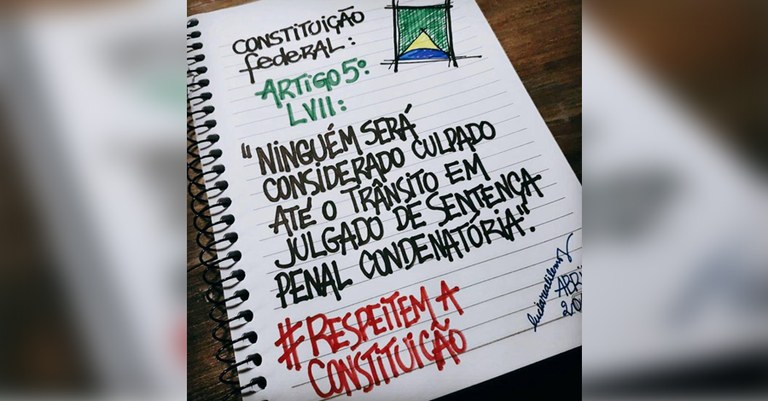 CONSTITUIÇÃO
federal:
ARTIGO 5º
LVII:
"NINGUÉM SERÁ
CONSIDERADO CULPADO
ATÉ O TRÂNSITO EM
JULGADO DE SENTENÇA
PENAL CONDENATÓRIA".
#RESPEITEM A
CONSTITUIÇÃO